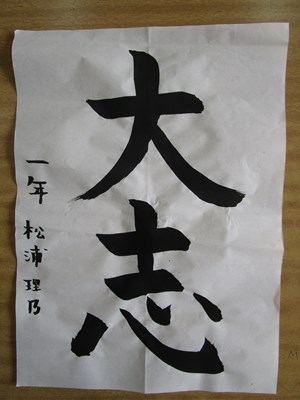 大志
一年 松浦 理乃